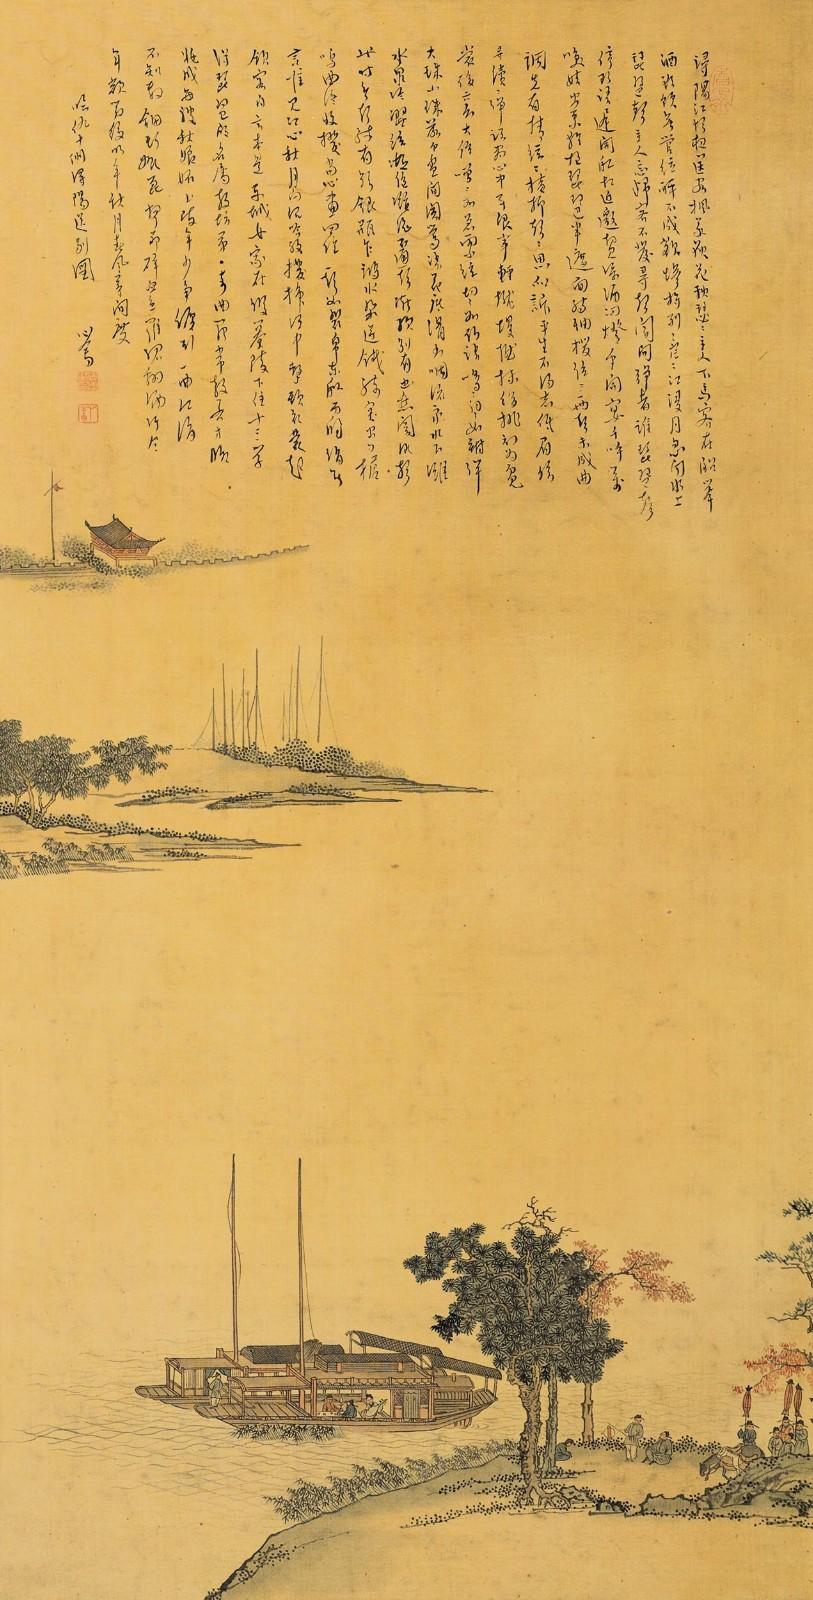 潯陽江頭夜送客楓葉荻花秋瑟〻主人下馬客在船舉
酒欲飲無管絃醉不成歡慘將別〻時茫〻江浸月忽聞水上
琵琶聲主人忘歸客不發尋聲闇問彈者誰琵琶聲
停欲語遲移船相近邀相見添酒回燈重開宴千呼萬
喚始出來猶抱琵琶半遮面轉軸撥絃三兩聲未成曲
調先有情絃〻掩抑聲〻思似訴平生不得志低眉信
手續〻彈說盡心中無限事輕攏慢撚抹復挑初為霓
裳後六么大絃嘈〻如急雨小絃切〻如私語嘈〻切〻錯雜彈
大珠小珠落玉盤間關鶯語花底滑幽咽流泉水下灘
水泉冷澀絃凝絕凝絕不通聲暫歇別有幽愁闇恨生
此時無聲勝有聲銀瓶乍破水漿迸鐵騎突出刀槍
鳴曲終收撥當心畫四絃一聲如裂帛東船西舫悄無
言唯見江心秋月白沉吟放撥插絃中整頓衣裳起
斂容自言本是京城女家在蝦蟇陵下住十三學
得琵琶成名屬教坊第一部曲罷常教善才服
妝成每被秋娘妒五陵年少爭纏頭一曲紅綃
不知數鈿頭銀篦擊節碎血色羅裙翻酒污今
年歡笑復明年秋月春風等閒度
臨仇十洲潯陽送別圖
心畬